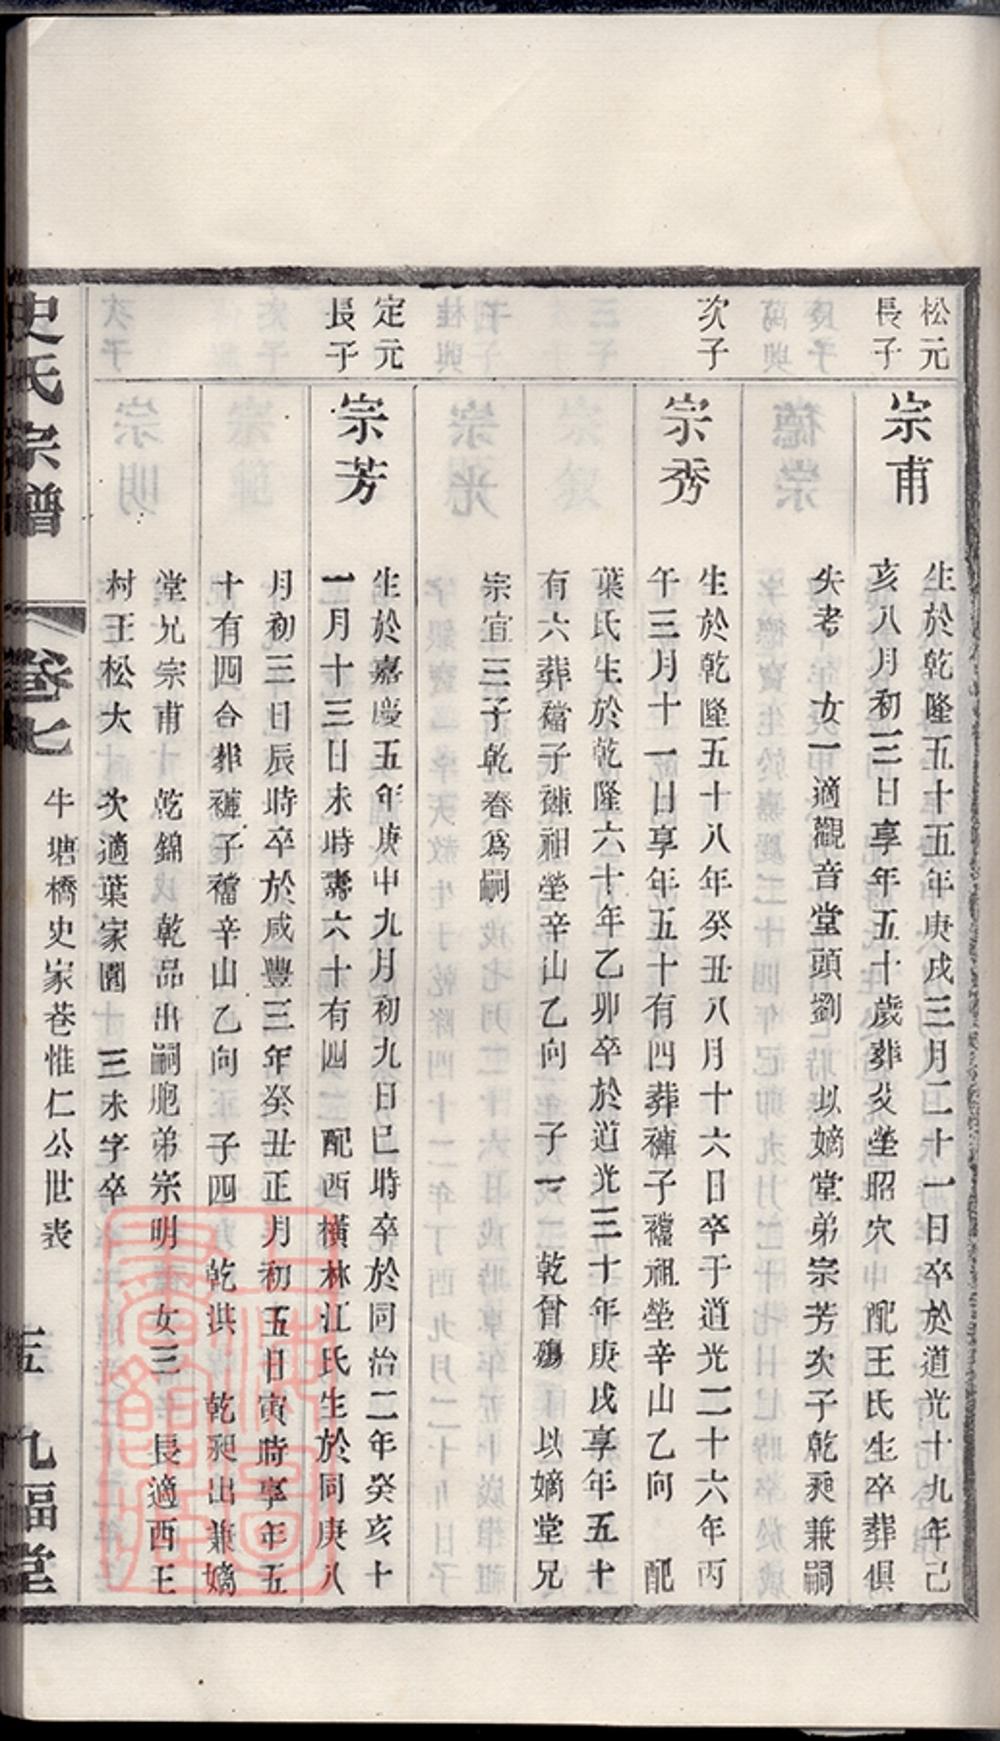 松元
長子
宗甫
生於乾隆五十五年庚戌三月二十一日卒於道光十九年己
亥八月初三日享年五十歲葬父塋昭穴 配王氏生卒葬俱
失考 女一適觀音堂頭劉 以嫡堂弟宗芳次子乾昶兼嗣
次子
宗秀
生於乾隆五十八年癸丑八月十六日卒于道光二十六年丙
午三月十一日享年五十有四葬褲子襠祖塋辛山乙向 配
葉氏生於乾隆六十年乙卯卒於道光三十年庚戌享年五十
有六葬襠子褲祖塋辛山乙向 子一 乾曾殤 以嫡堂兄
宗宜三子乾春為嗣
定元
長子
宗芳
生於嘉慶五年庚申九月初九日巳時卒於同治二年癸亥十
一月十三日未時壽六十有四 配西橫林江氏生於同庚八
月初三日辰時卒於咸豐三年癸丑正月初五日寅時享年五
十有四合葬褲子襠辛山乙向 子四 乾洪 乾昶出兼嫡
堂兄宗甫 乾錦 乾品出嗣胞弟宗明 女三 長適西王
村王松大 次適葉家園 三未字卒
史氏宗譜
卷七
牛塘橋史家巷惟仁公世表
五
九福堂